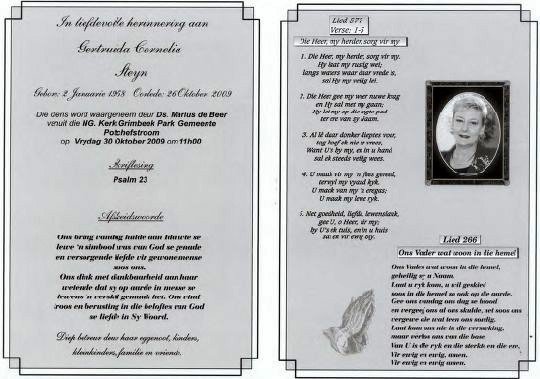 In liefdevolle herinnering aan
Gertruida Cornelis
Steyn
Gebore: 2 Januarie 1958 Oorlede: 26 Oktober 2009
Die diens word waargeneem deur Ds. Marius de Beer
vanuit die NG. Kerk Grimbeek Park Gemeente
Potchefstroom
op Vrydag 30 Oktober 2009 om 11h00
Skriflesing
Psalm 23
Afskeidswoorde
Ons bring vandag hulde aan
lewe 'n simbool was van God se genade
en versorgende liefde vir gewonemense
soos ons.
Ons dink met dankbaarheid aan haar
wetende dat sy op aarde in mense se
lewens 'n verskil gemaak het. Ons vind
troos en berusting in die beloftes van God
se liefde in Sy Woord.
Diep betreur deur haar eggenoot, kinders,
kleinkinders, familie en vriende.
Lied 571
Verse: 1-5
Die Heer, my herder, sorg vir my
1. Die Heer, my herder, sorg vir my.
Hy laat my rustig wei;
langs waters waar daar vrede is,
sal Hy my veilig lei.
2. Die Heer gee my weer nuwe krag
en Hy sal met my gaan;
Hy lei my op die regte pad
ter ere van sy naam.
3. Al lê daar donker dieptes voor,
tog hoef ek nie te vrees,
Want U's by my, en in u hand
sal ek steeds veilig wees.
4. U maak vir my 'n fees gereed,
terwyl my vyand kyk.
U maak van my 'n eregas;
U maak my lewe ryk.
5. Net goedheid, liefde, lewenslank,
gee U, o Heer, vir my;
by U's ek tuis, en in u huis
sal ek vir ewig bly.
Lied 266
Ons Vader wat woon in die hemel
Ons Vader wat woon in die hemel,
geheilig sy u Naam.
Laat u ryk kom, u wil geskied
soos in die hemel so ook op die aarde.
Gee ons vandag ons dag se brood
en vergeef ons al ons skulde, net soos ons
vergewe die wat teen ons sondig.
Laat kom ons nie in die versoeking,
maar verlos ons van die bose
Van U is die ryk en die sterkte en die eer,
Vir ewig en ewig, amen.
Vir ewig en ewig, amen.